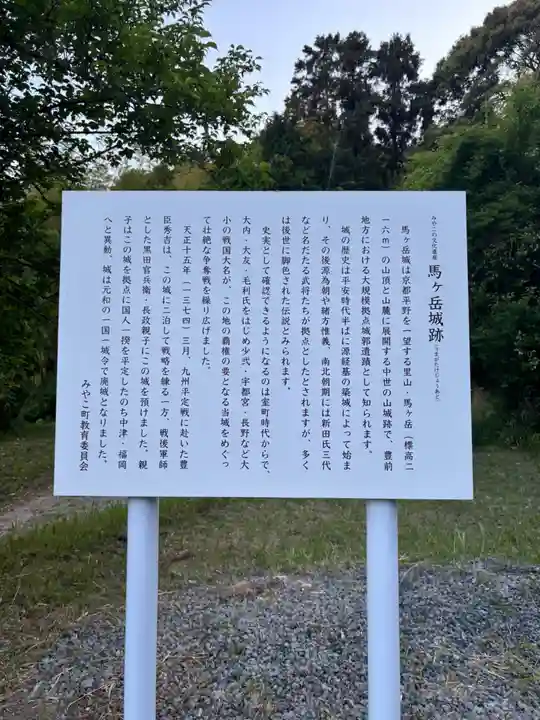 みやこの文化遺産
馬ヶ岳城跡（うまがたけじょうあと）
馬ヶ岳城は京都平野を一望する里山・馬ヶ岳（標高二
一六ｍ）の山頂と山麓に展開する中世の山城跡で、豊前
地方における大規模拠点城郭遺蹟として知られます。
城の歴史は平安時代半ばに源経基の築城によって始ま
り、その後源為朝や緒方惟義、南北朝期には新田氏三代
など名だたる武将たちが拠点としたとされますが、多く
は後世に脚色された伝説とみられます。
史実として確認できるようになるのは室町時代からで、
大内・大友・毛利氏をはじめ少弐・宇都宮・長野など大
小の戦国大名が、この地の覇権の要となる当城をめぐっ
て壮絶な争奪戦を繰り広げました。
天正十五年（一三七四）三月、九州平定戦に赴いた豊
臣秀吉は、この城に二泊して戦略を練る一方、戦後軍師
とした黒田官兵衛・長政親子にこの城を預けました。親
子はこの城を拠点に国人一揆を平定したのち中津・福岡
へと異動、城は元和の一国一城令で廃城となりました。
みやこ町教育委員会